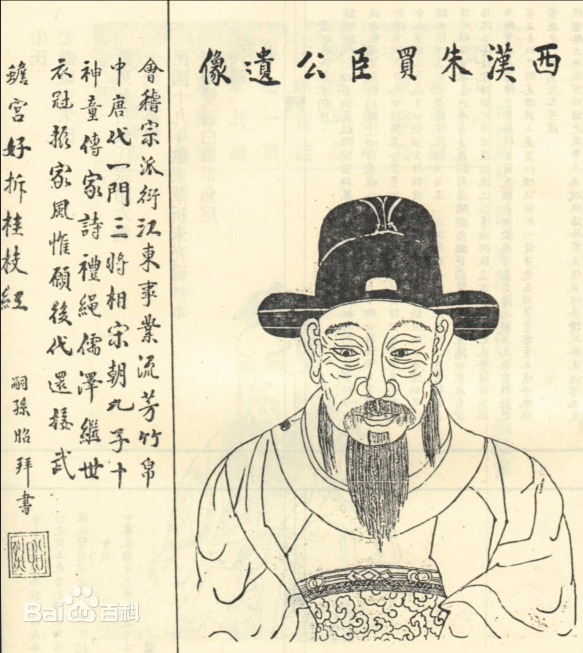 西漢朱買臣公遺像
會稽宗派衍江東事業流芳竹帛
中唐代一門三將相宋朝九子十
神童傳家詩禮繩儒澤繼世
衣冠振家風惟願後代還接武
蟾宮好折桂枝紅
嗣孫昭拜書
Bai百科